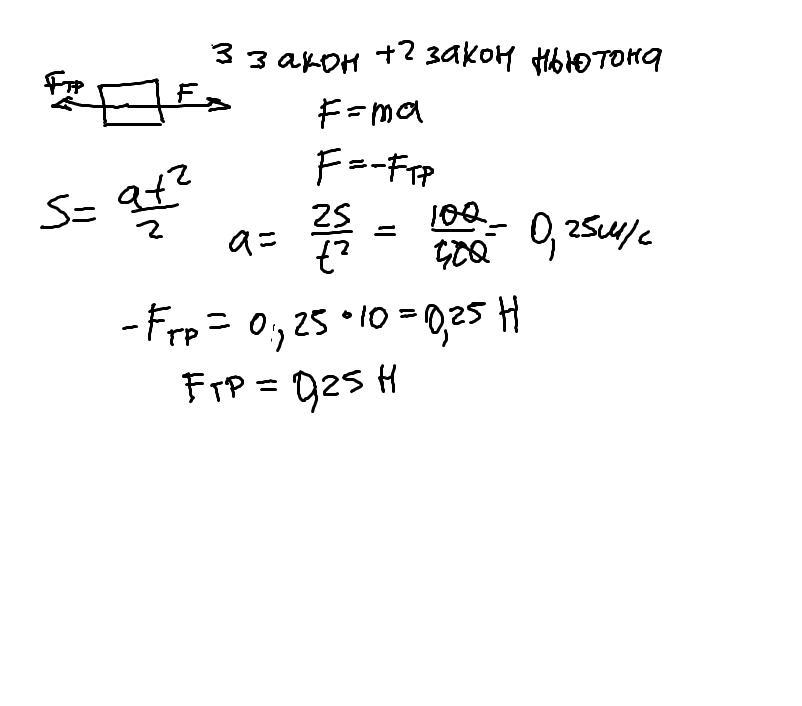 3 закон + 2 закон Ньютона
Fтр F
F = ma
F = -Fтр
S = at²/2
a = 2S/t² = 100/400 = 0,25м/с
-Fтр = 0,25 · 10 = 0,25 Н
Fтр = 0,25 Н